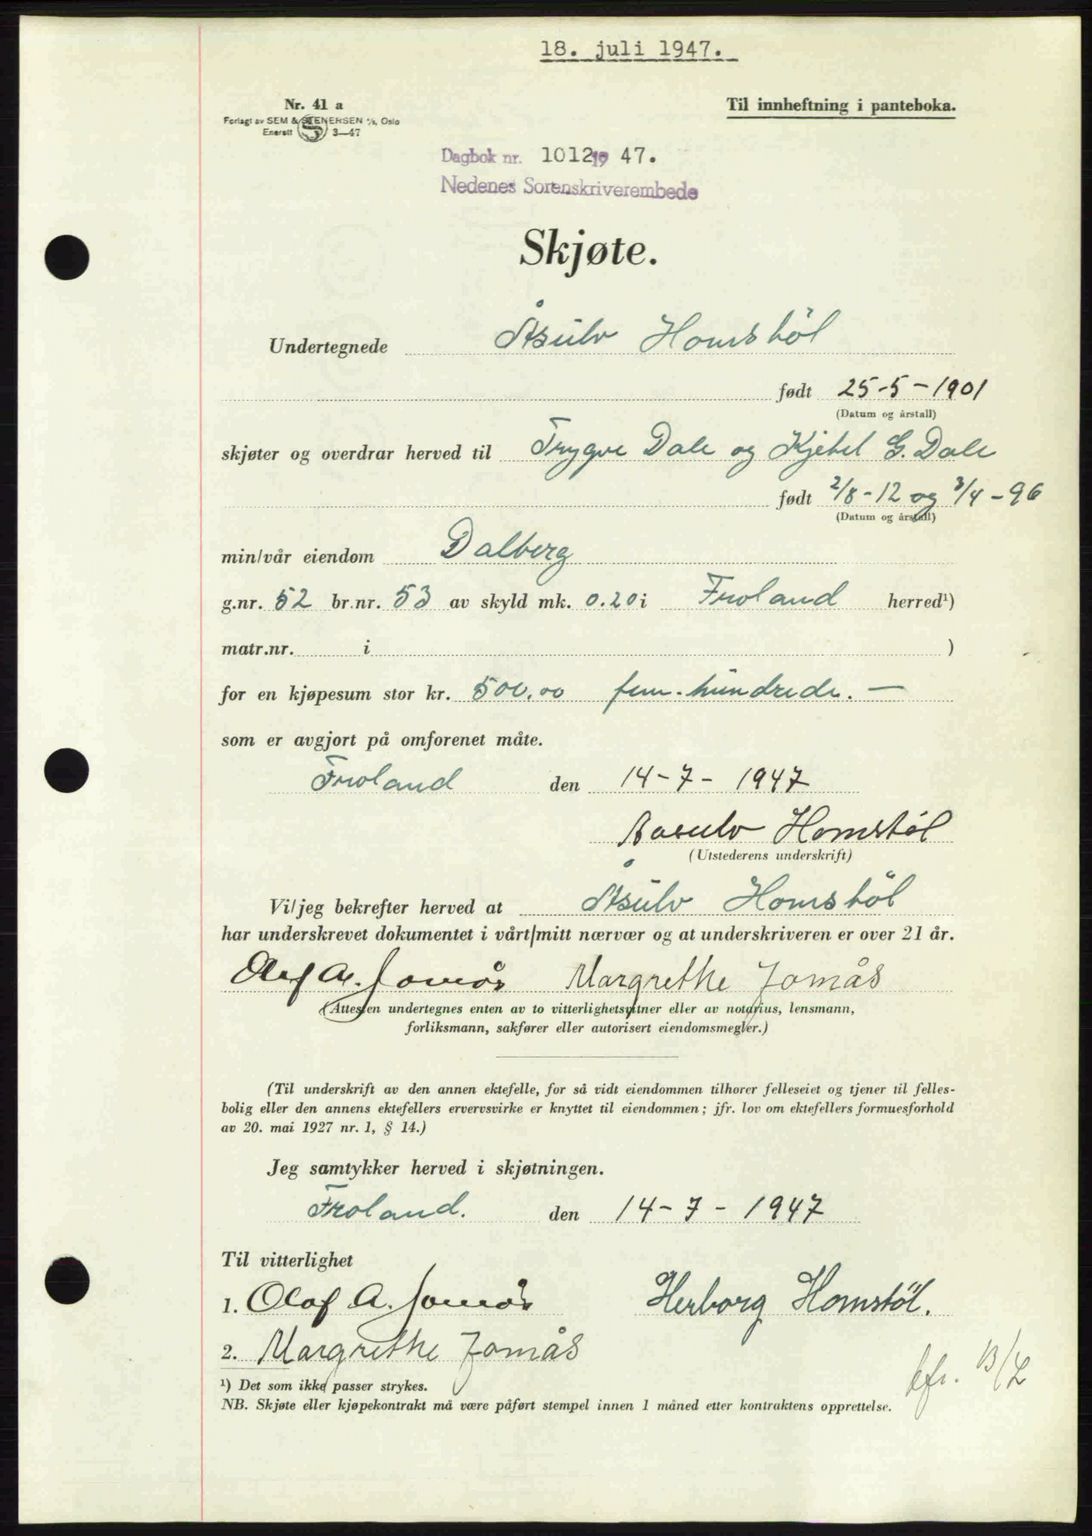 18. juli 1947.
Nr. 41 a
Til innheftning i panteboka.
Forlagt av SEM & STENERSEN A/S, Oslo
Enerett S 3—47
Dagbok nr. 1012 19 47.
Nedenes Sorenskriverembede
Skjøte.
Undertegnede Åsulv Homstöl
født 25-5-1901
(Datum og årstall)
skjøter og overdrar herved til Trygve Dale og Kjetil G. Dale
født 2/8-12 og 3/4-96
(Datum og årstall)
min/vår eiendom Dalberg
g.nr. 52 br.nr. 53 av skyld mk. 0.20 i Froland herred¹)
matr.nr. i )
for en kjøpesum stor kr. 500,00 fem-hundrede. —
som er avgjort på omforenet måte.
Froland den 14-7-1947
Aasulv Homstøl
(Utstederens underskrift)
Vi/jeg bekrefter herved at Åsulv Homstöl
har underskrevet dokumentet i vårt/mitt nærvær og at underskriveren er over 21 år.
Olaf A. Jomås Margrethe Jomås
(Attesten undertegnes enten av to vitterlighetsvitner eller av notarius, lensmann,
forliksmann, sakfører eller autorisert eiendomsmegler.)
(Til underskrift av den annen ektefelle, for så vidt eiendommen tilhører felleseiet og tjener til felles-
bolig eller den annens ektefellers ervervsvirke er knyttet til eiendommen; jfr. lov om ektefellers formuesforhold
av 20. mai 1927 nr. 1, § 14.)
Jeg samtykker herved i skjøtningen.
Froland. den 14-7-1947
Til vitterlighet
1. Olaf A. Jomås Herborg Homstöl.
2. Margrethe Jomås
¹) Det som ikke passer strykes.
NB. Skjøte eller kjøpekontrakt må være påført stempel innen 1 måned etter kontraktens opprettelse.